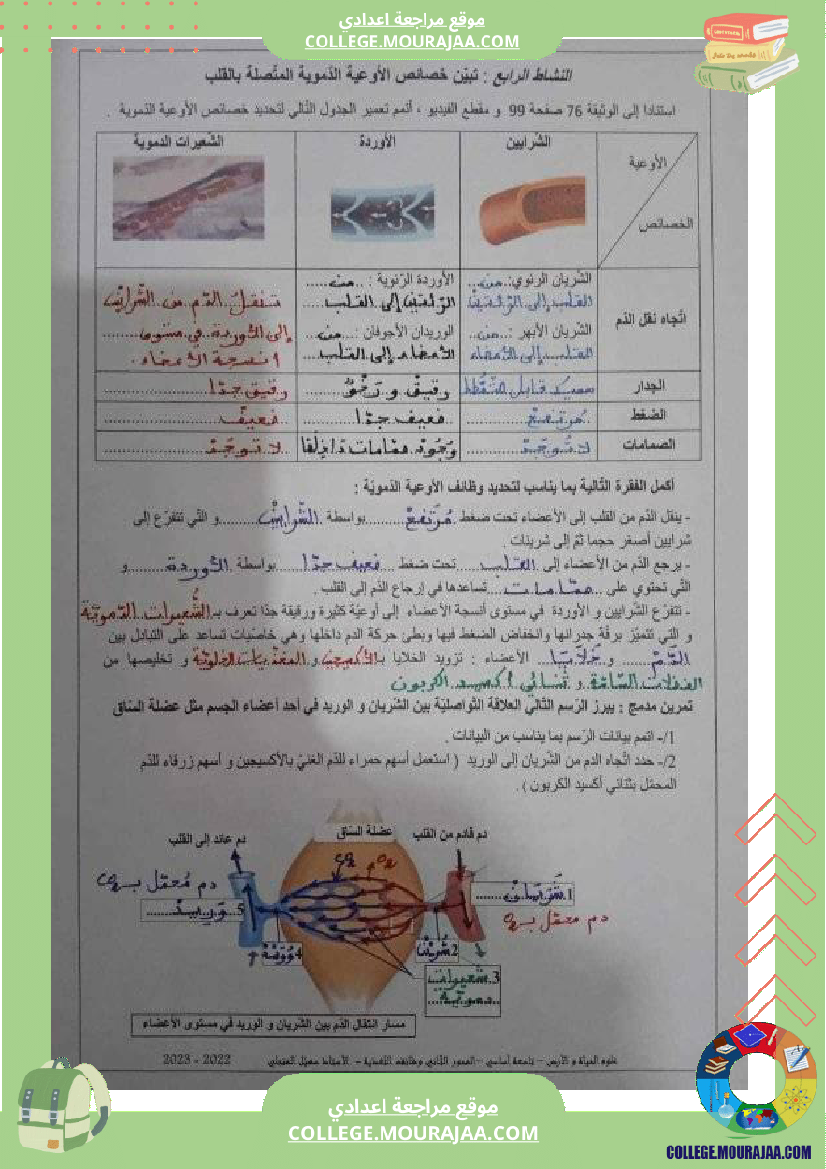 موقع مراجعة اعدادي
COLLEGE.MOURAJAA.COM
النشاط الرابع : تبيّن خصائص الأوعية الدّموية المتّصلة بالقلب
استنادا إلى الوثيقة 76 صفحة 99 و مقطع الفيديو ، أتمم تعمير الجدول التّالي لتحديد خصائص الأوعية الدّموية .
الأوعية
الخصائص
الشّرايين
الأوردة
الشّعيرات الدموية
اتّجاه نقل الدّم
الشّريان الرئوي: من
القلب إلى الرئتين
الشّريان الأبهر : من
القلب إلى الأعضاء
الأوردة الرّئوية : من
الرئتين إلى القلب
الوريدان الأجوفان : من
الأعضاء إلى القلب
تنقل الدّم من الشّرايين
إلى الأوردة في مستوى
أنسجة الأعضاء .
الجدار
سميك قابل للتمطّط
رقيق و رخو
رقيق جدّا
الضغط
مرتفع
ضعيف جدّا
ضعيف
الصمامات
لا توجد
وجود صمامات داخلها
لا توجد
أكمل الفقرة التّالية بما يناسب لتحديد وظائف الأوعية الدّمويّة :
- ينقل الدّم من القلب إلى الأعضاء تحت ضغط مرتفع بواسطة الشّرايين و الّتي تتفرّع إلى
شرايين أصغر حجما ثمّ إلى شرينات .
- يرجع الدّم من الأعضاء إلى القلب تحت ضغط ضعيف جدّا بواسطة الأوردة و
الّتي تحتوي على صمامات تساعدها في إرجاع الدّم إلى القلب .
- تتفرّع الشّرايين و الأوردة في مستوى أنسجة الأعضاء إلى أوعيّة كثيرة ورقيقة جدّا تعرف بـ الشّعيرات الدّمويّة
و الّتي تتميّز برقّة جدرانها وانخفاض الضغط فيها وبطئ حركة الدم داخلها وهي خاصّيات تساعد على التبادل بين
الدّم و خلايا الأعضاء : تزويد الخلايا بـ الأكسجين و المغذيات الخلويّة و تخليصها من
الفضلات السّامّة و ثنائي أكسيد الكربون
تمرين مدمج : يبرز الرّسم التّالي العلاقة التّواصليّة بين الشّريان و الوريد في أحد أعضاء الجسم مثل عضلة السّاق
1/- اتمم بيانات الرّسم بما يناسب من البيانات .
2/- حدد اتّجاه الدم من الشّريان إلى الوريد ( استعمل أسهم حمراء للدّم الغنيّ بالأكسيجين و أسهم زرقاء للدّم
المحمّل بثنائي أكسيد الكربون ) .
دم قادم من القلب
عضلة السّاق
دم عائد إلى القلب
1 شريان
دم محمّل بـ O2
2 شرين
3 شعيرات
دموية
4
5 وريد
دم محمّل بـ CO2
مسار انتقال الدّم بين الشّريان و الوريد في مستوى الأعضاء
2022 - 2023
موقع مراجعة اعدادي
COLLEGE.MOURAJAA.COM
COLLEGE.MOURAJAA.COM